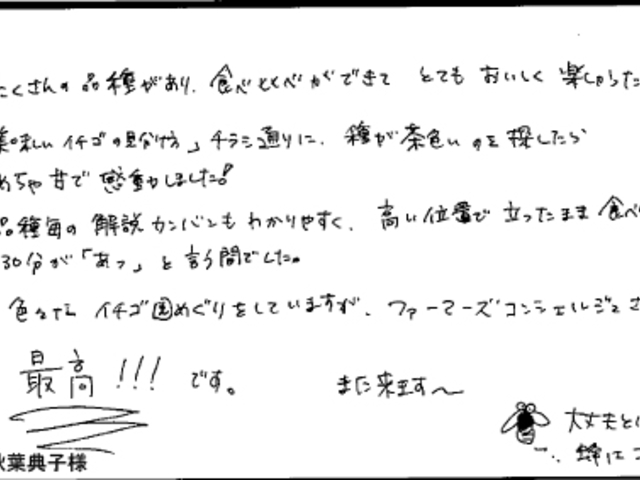 たくさんの品種があり、食べくらべができて とても おいしく 楽しかった
美味しいイチゴの見分け方」チラシ通りに、種が茶色いのを探したら
めちゃ甘で感動しました!
品種毎の解説カンバンもわかりやすく、高い位置で立ったまま食べ
30分が「あっ」と言う間でした。
色々なイチゴ園めぐりをしていますが、ファーマーズコンシェルジュさ
最高!!! です。 また来ます〜
大丈夫と
蜂に
秋葉典子様